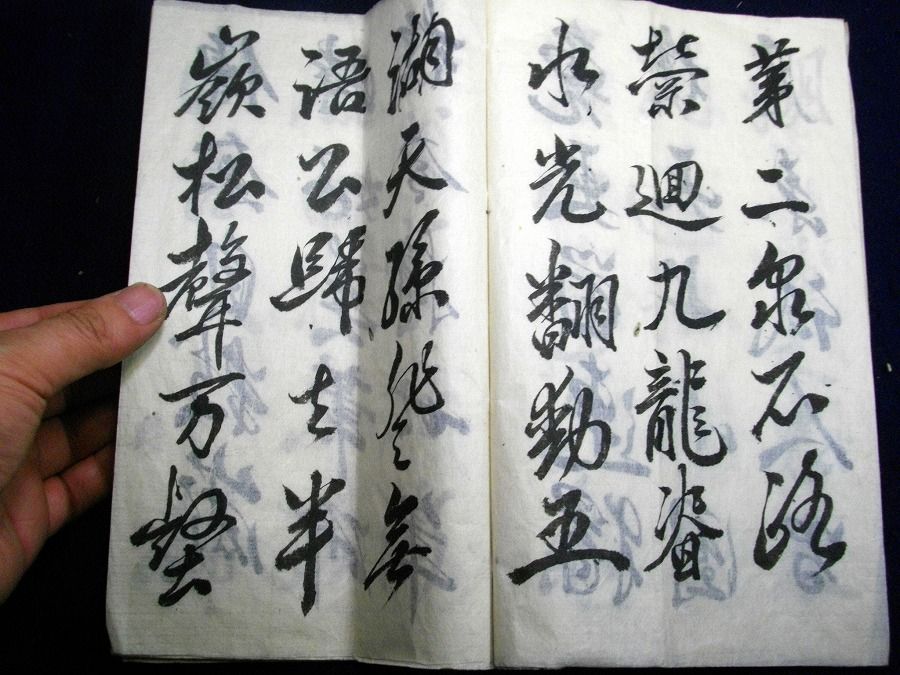 第二泉石路
縈迴九龍脊
水光翻動五
湖天孫登無
語空歸去半
嶺松聲万壑